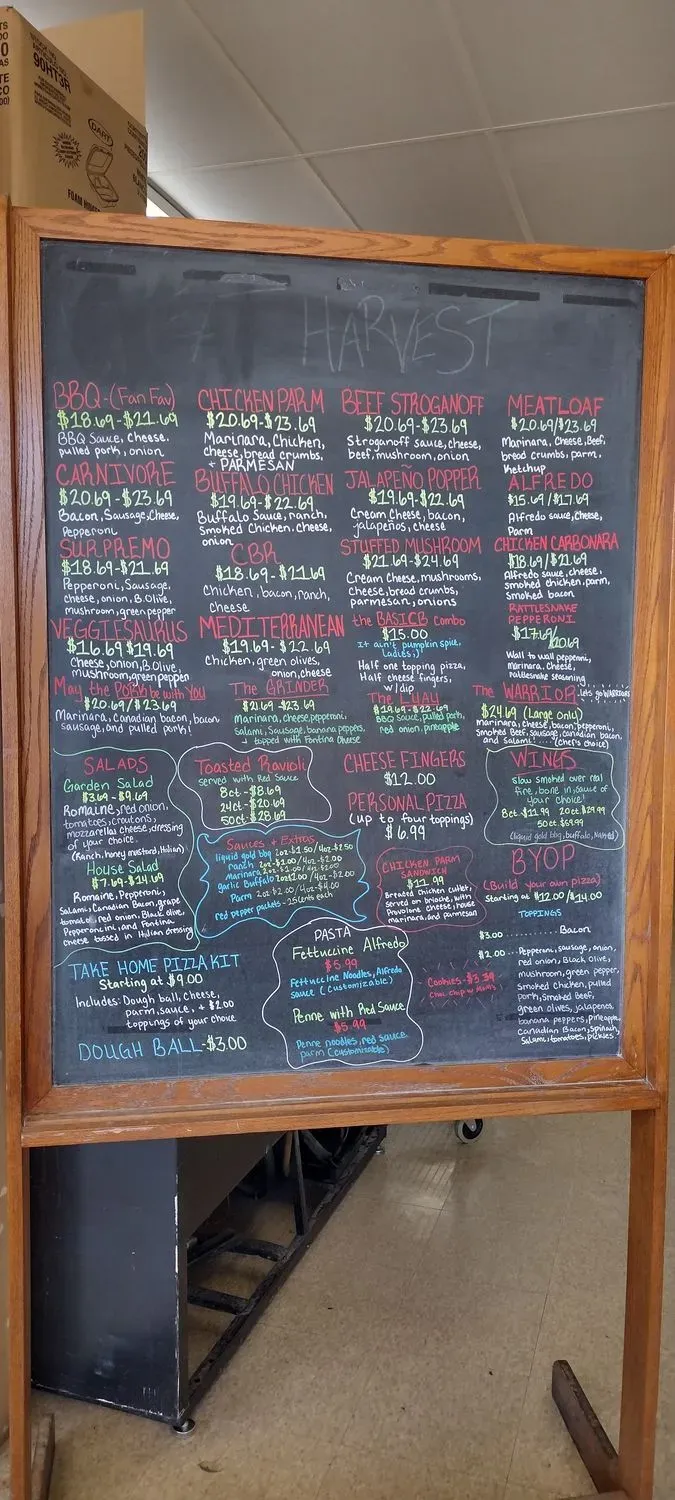 90HT3R
DART
HARVEST
BBQ-(Fan Fav)
$18.69-$21.69
BBQ Sauce, cheese,
pulled pork, onion
CHICKEN PARM
$20.69-$23.69
Marinara, Chicken,
cheese, bread crumbs,
+ PARMESAN
BEEF STROGANOFF
$20.69-$23.69
Stroganoff sauce, cheese,
beef, mushroom, onion
MEATLOAF
$20.69/$23.69
Marinara, Cheese, Beef,
bread crumbs, parm,
ketchup
CARNIVORE
$20.69-$23.69
Bacon, Sausage, Cheese,
Pepperoni
BUFFALO CHICKEN
$19.69-$22.69
Buffalo Sauce, ranch,
Smoked Chicken, cheese,
onion
JALAPEÑO POPPER
$19.69-$22.69
Cream Cheese, bacon,
jalapenos, cheese
ALFREDO
$15.69/$17.69
Alfredo sauce, Cheese,
Parm
SURPREMO
$18.69-$21.69
Pepperoni, Sausage,
cheese, onion, B.Olive,
mushroom, green pepper
CBR
$18.69-$21.69
Chicken, bacon, ranch,
Cheese
STUFFED MUSHROOM
$21.69-$24.69
Cream Cheese, mushrooms,
cheese, bread crumbs,
parmesan, onions
CHICKEN CARBONARA
$18.69/$21.69
Alfredo sauce, cheese,
smoked chicken, parm,
smoked bacon
VEGGIESAURUS
$16.69 $19.69
Cheese, onion, B.Olive,
mushroom, green pepper
MEDITERRANEAN
$19.69-$22.69
chicken, green olives,
onion, cheese
the BASICB combo
$15.00
it ain't pumpkin spice,
ladies ;)
Half one topping pizza,
Half cheese fingers,
w/dip
RATTLESNAKE
PEPPERONI
$17.69/
20.69
Wall to wall pepperoni,
marinara, Cheese,
rattlesnake seasoning
May the PORK be with You
$20.69/$23.69
Marinara, Canadian bacon, bacon,
sausage, and pulled pork!
The GRINDER
$21.69-$23.69
marinara, cheese, pepperoni,
salami, Sausage, banana peppers,
+ topped with Fontina Cheese
The LUAU
$19.69-$22.69
BBQ Sauce, Pulled pork,
red onion, pineapple
The WARRIOR
Lets go WARRIORS
$24.69 (Large Only)
marinara, cheese, bacon, pepperoni,
Smoked Beef, sausage, canadian bacon,
and Salami!....(Chef's choice)
SALADS
Garden Salad
$3.69-$9.69
Romaine, red onion,
tomatoes, croutons,
mozzarella cheese, dressing
of your choice.
(Ranch, honey mustard, Italian)
House Salad
$7.69-$14.69
Romaine, Pepperoni,
Salami, Canadian Bacon, grape
tomato, red onion, Black olive,
Pepperoncini, and Fontina
cheese tossed in Italian dressing
Toasted Ravioli
served with Red Sauce
8ct-$8.69
24ct-$20.69
50ct-$28.69
CHEESE FINGERS
$12.00
PERSONAL PIZZA
(up to four toppings)
$6.99
WINGS
slow smoked over real
fire, bone in, sauce of
your choice!
8ct-$11.99 20ct $29.99
50ct $59.99
(liquid gold bbq, buffalo, Naked)
Sauces + Extras
liquid gold bbq 2oz-$1.50/4oz-$2.50
ranch 2oz-$1.00/4oz-$2.00
marinara 2oz-$1.00/4oz-$2.00
garlic Buffalo 2oz $1.00/4oz-$2.00
Parm 2oz $2.00/4oz-$4.00
red pepper packets-25cents each
CHICKEN PARM
SANDWICH
$11.99
Breaded Chicken cutlet,
served on brioche, with
Provolone cheese, house
marinara, and parmesan
BYOP
(Build your own pizza)
Starting at $12.00/$14.00
TOPPINGS
$3.00............Bacon
$2.00....Pepperoni, sausage, onion,
red onion, Black Olive,
mushroom, green pepper,
Smoked chicken, pulled
pork, Smoked Beef,
green olives, jalapenos,
banana peppers, pineapple,
Canadian Bacon, Spinach,
Salami, tomatoes, pickles!
TAKE HOME PIZZA KIT
Starting at $9.00
Includes: Dough ball, cheese,
parm, sauce, + $2.00
toppings of your choice
DOUGH BALL-$3.00
PASTA
Fettuccine Alfredo
$5.99
Fettuccine Noodles, Alfredo
sauce (Customizable)
Penne with Red Sauce
$5.99
Penne noodles, red sauce,
parm (customizable)
Cookies-$3.39
Choc. chip w/ M&M's